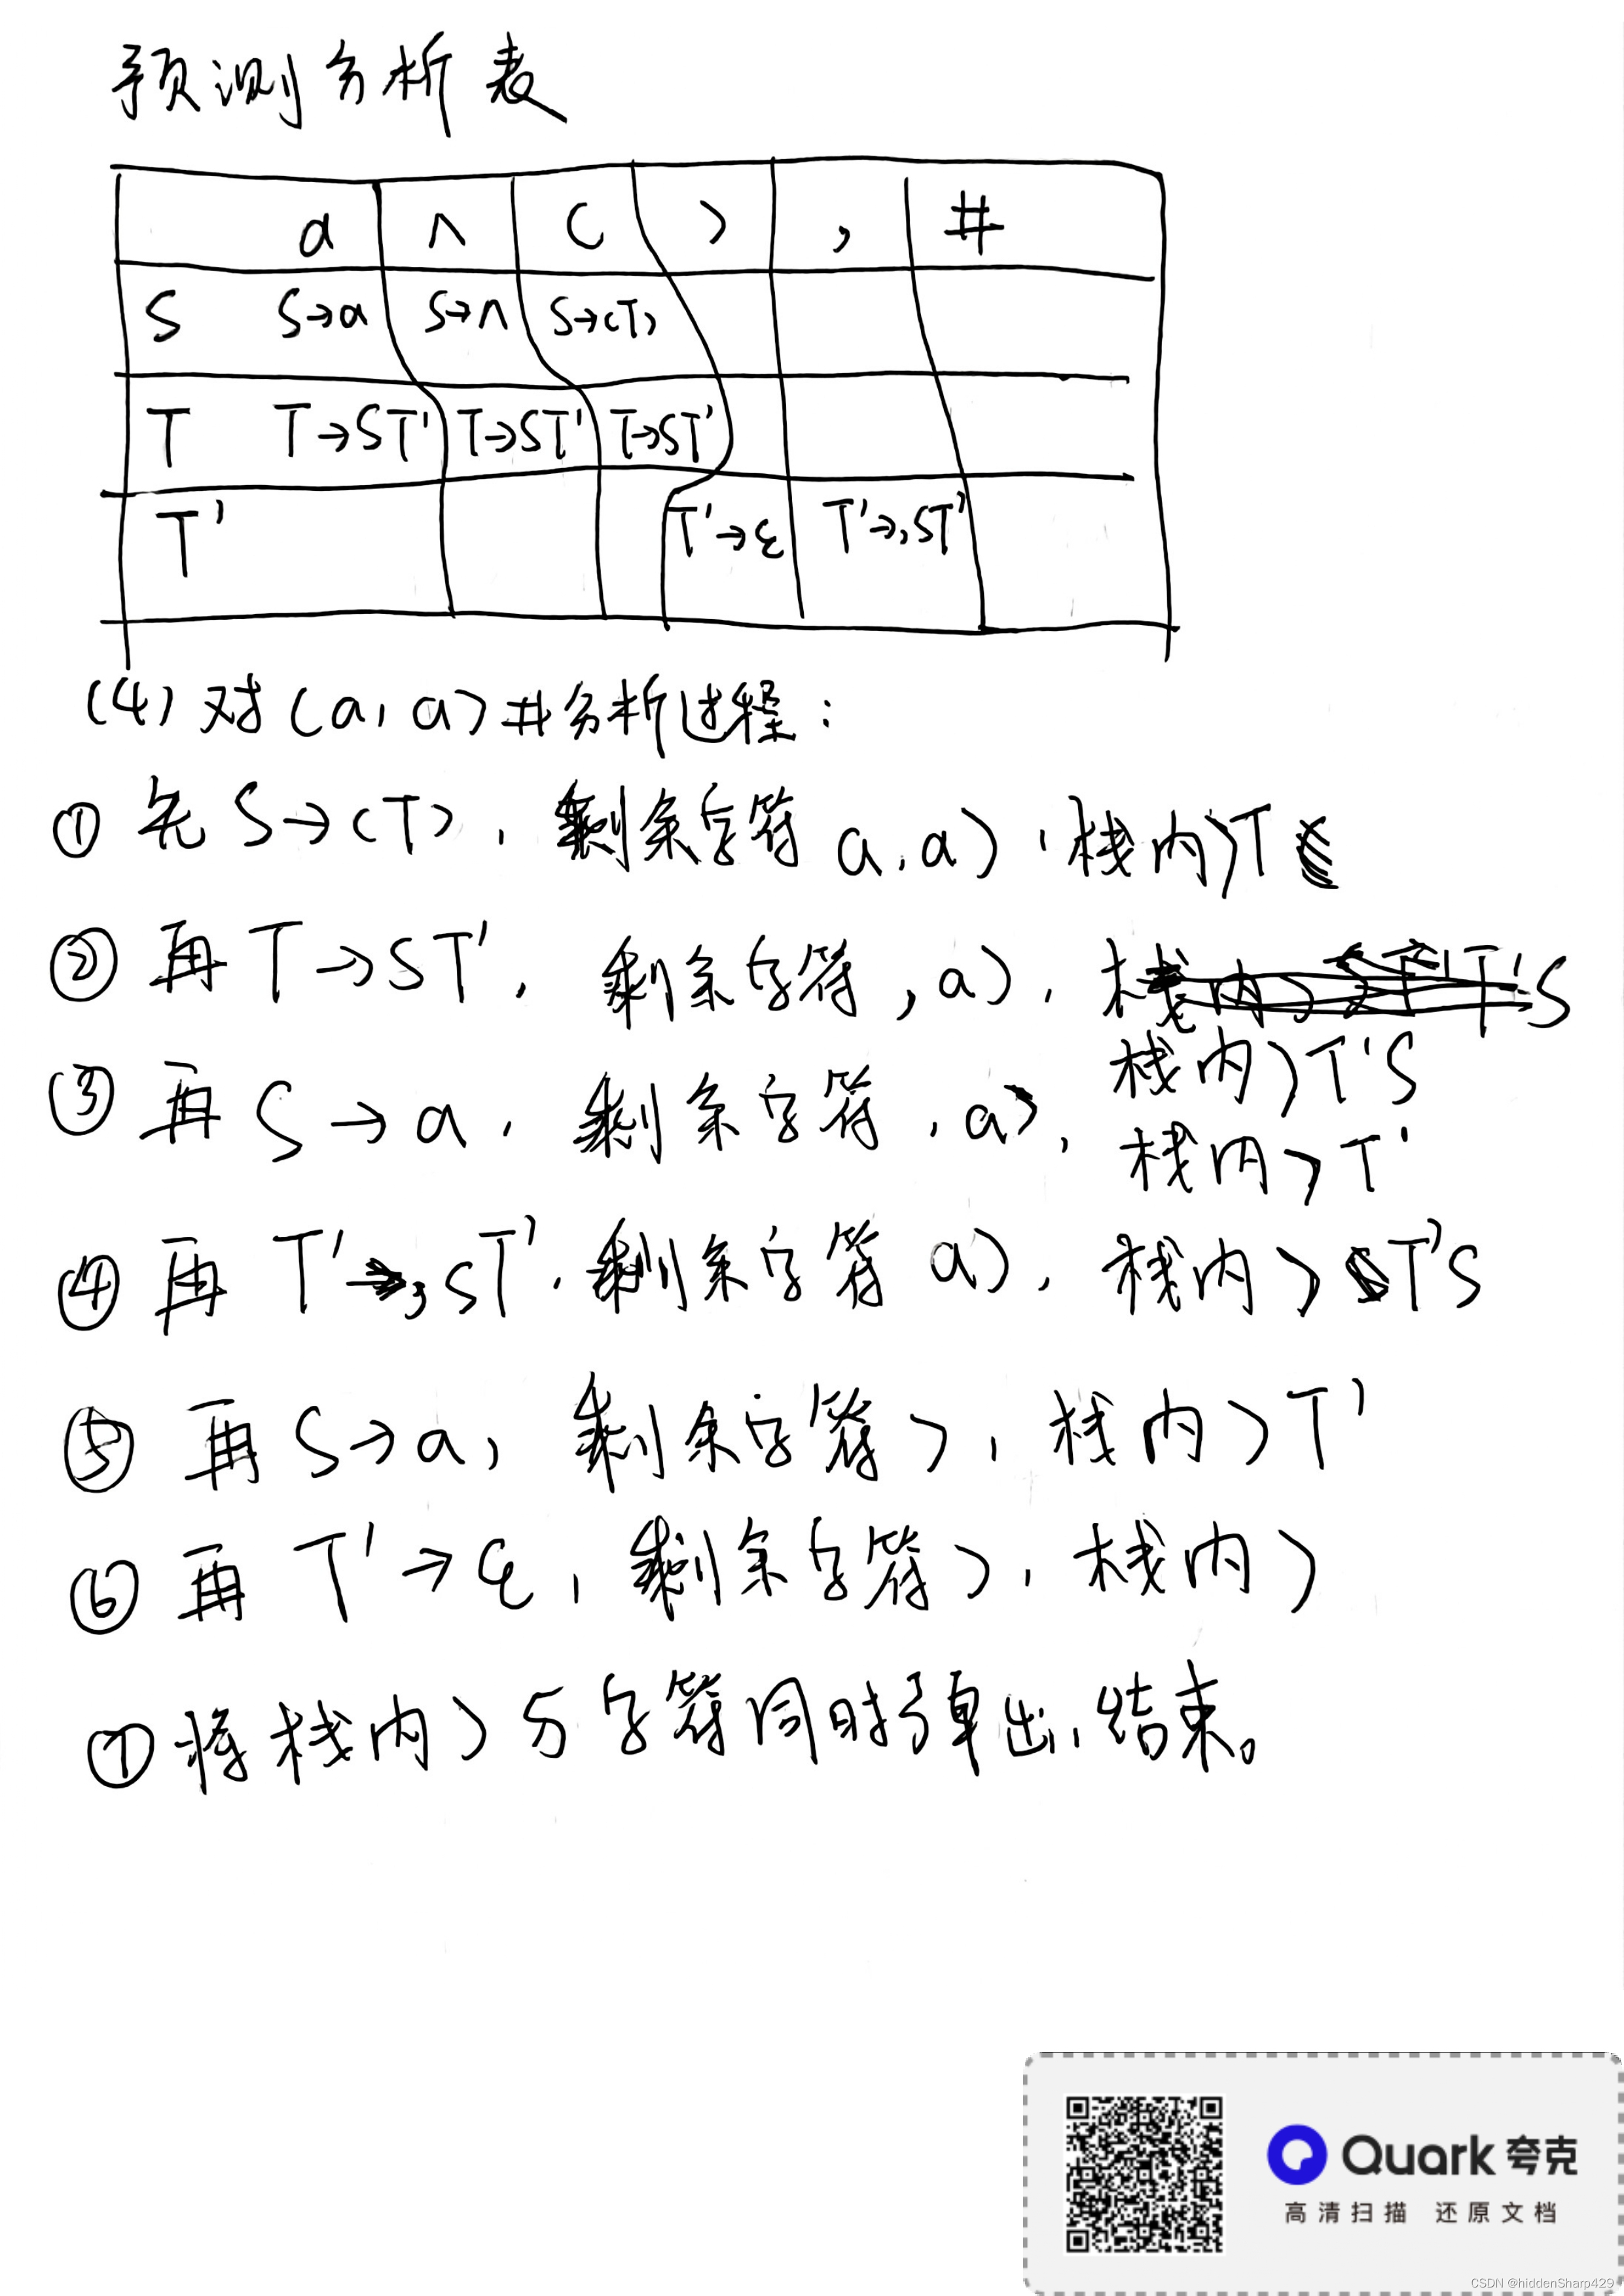 预测分析表
a ∧ ( ) , #
S S→a S→∧ S→(T)
T T→ST' T→ST' T→ST'
T' T'→ε T'→,ST'
(4) 对(a,a)#分析过程:
① 先S→(T), 剩余字符a,a), 栈内)T
② 再T→ST', 剩余字符,a),
栈内)T'S
③ 再S→a, 剩余字符,a),
栈内)T'
④ 再T'→,ST', 剩余字符a), 栈内)T'S
⑤ 再S→a, 剩余字符), 栈内)T'
⑥ 再T'→ε, 剩余字符), 栈内)
⑦ 将栈内)与字符同时弹出,结束。
Quark 夸克
高清扫描 还原文档
CSDN @hiddenSharp429